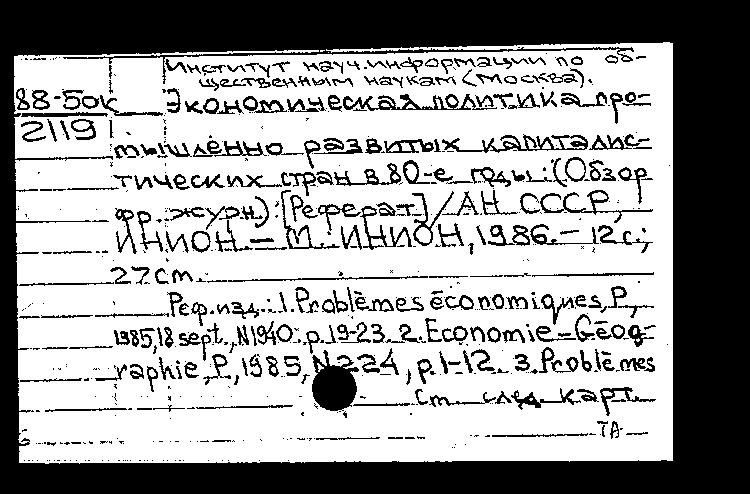 Институт науч.информации по об-
щественным наукам (Москва).
88-5ок Экономическая политика про-
2119
мышленно развитых капиталис-
тических стран в 80-е годы: (Обзор
фр. журн.): [Реферат] / АН СССР,
ИНИОН. — М.: ИНИОН, 1986. — 12 с.;
27 см.
Реф.изд.: 1. Problèmes économiques, P.,
1985, 18 sept., N1940. p. 19-23. 2. Economie - Géog-
raphie, P., 1985, N224, p. 1-12. 3. Problèmes
См. след. карт.
ТА